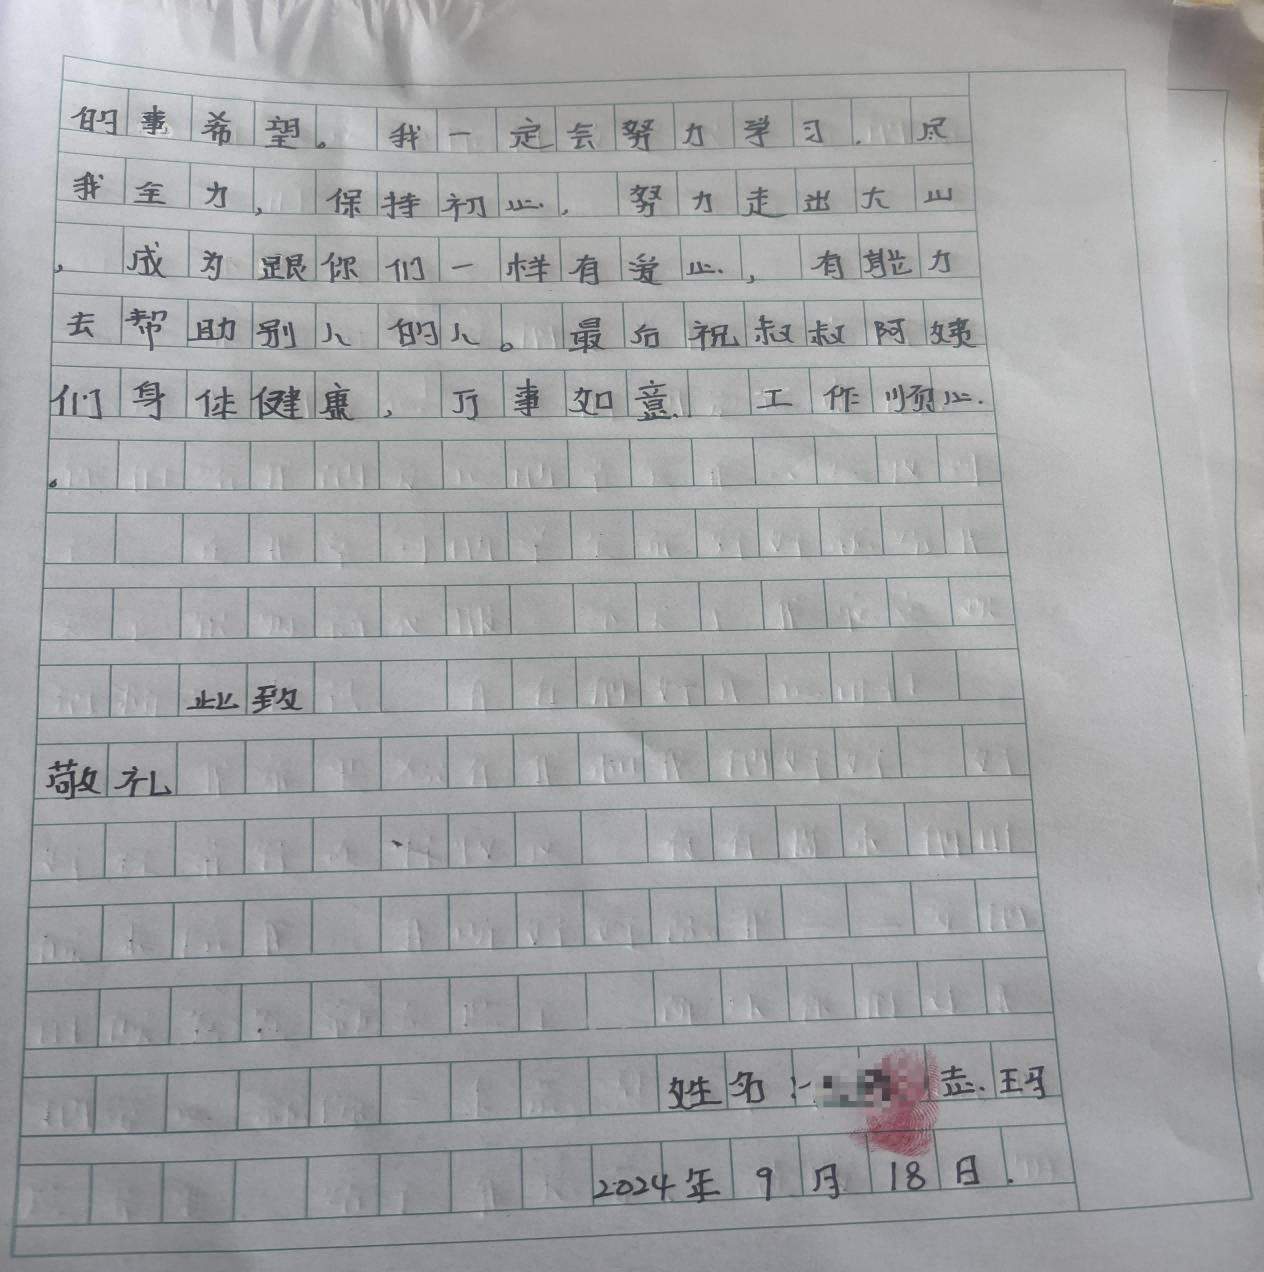 的事希望。我一定会努力学习.尽
我全力,保持初心,努力走出大山
,成为跟你们一样有爱心,有能力
去帮助别人的人。最后祝叔叔阿姨
们身体健康,万事如意.工作顺心
.
此致
敬礼
姓名: 志玛
2024年9月18日.